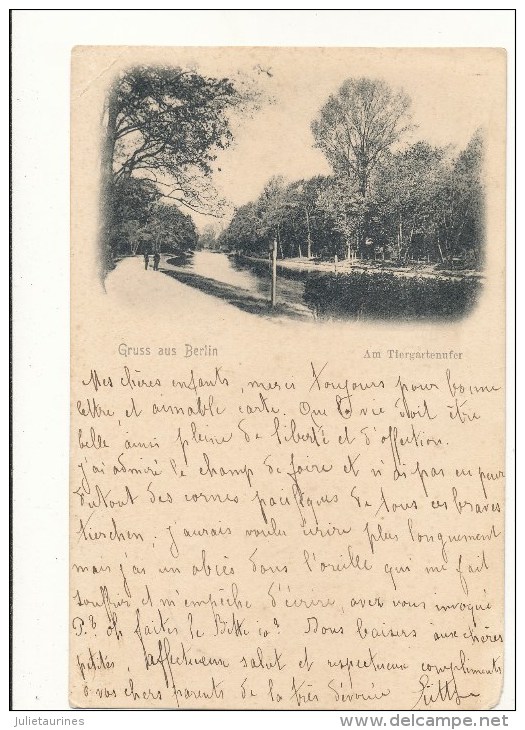 Gruss aus Berlin
Am Tiergartenufer
Mes chères enfants, merci toujours pour bonne
lettre et aimable carte. Que la vie doit être
belle ainsi pleine de liberté et d'affection.
j'ai admiré le champ de foire et n'ai pas eu peur
du tout des cornes pacifiques de tous ces braves
tierchen. j'aurais voulu écrire plus longuement
mais j'ai un abcès dans l'oreille qui me fait
souffrir et m'empêche d'écrire, avez vous invoqué
oh faites le Bitte Bons baisers aux chères
petites, affectueux salut et respectueux compliments
à vos chers parents de la très dévouée
julietaurines
http://www.delcampe.net